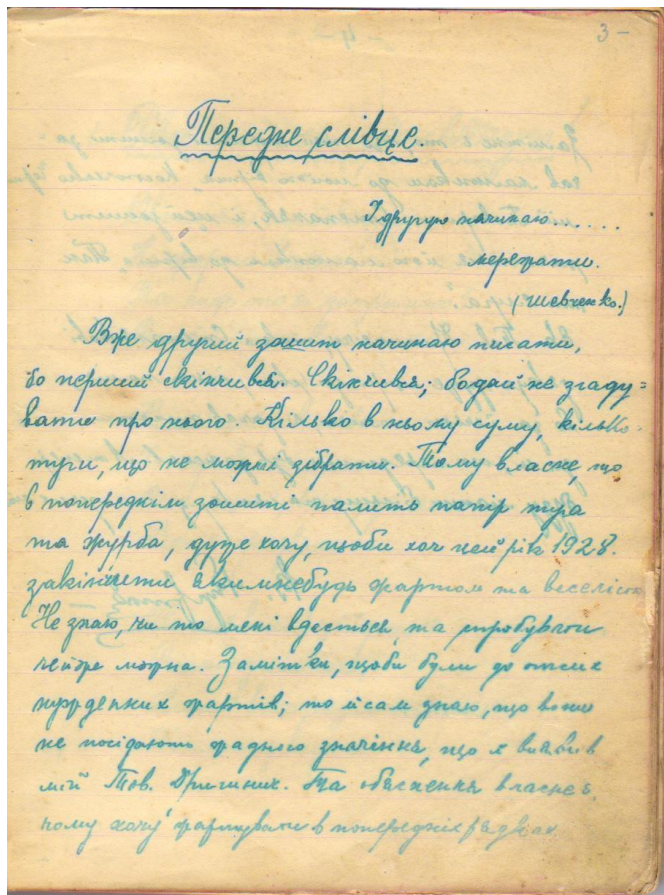 3 –
Переднє слівце.
І другую починаю......
мережати.
(Шевченко.)
Вже другий зошит починаю писати,
бо перший скінчився. Скінчився; бодай не згаду=
вати про нього. Кілько в ньому суму, кілько
туги, що не можні дібрати. Тому власне, що
в попереднім зошиті палить папір
та журба, дуже хочу, щоби хоч цей рік 1928.
закінчити якимнебудь жартом та веселістю
Не знаю, чи то мені вдасться, та спробувати
чейже можна. Замітки, щоби були до
жартів; то й сам знаю, що вони
не посідають жадного значіння, що я виявив
мій Тов. Та обяснення власне в
чому хочу в попередніх рядках